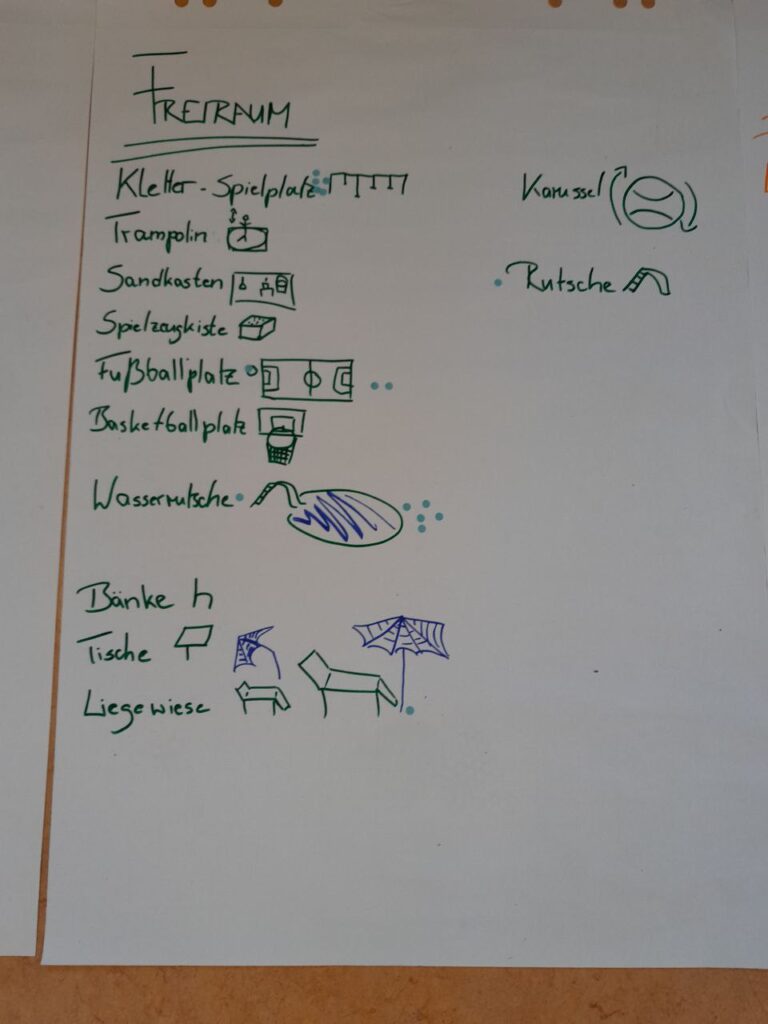 FREIRAUM
Kletter-Spielplatz
Trampolin
Sandkasten
Spielzeugkiste
Fußballplatz
Basketballplatz
Wasserrutsche
Bänke
Tische
Liegewiese
Karussel
Rutsche